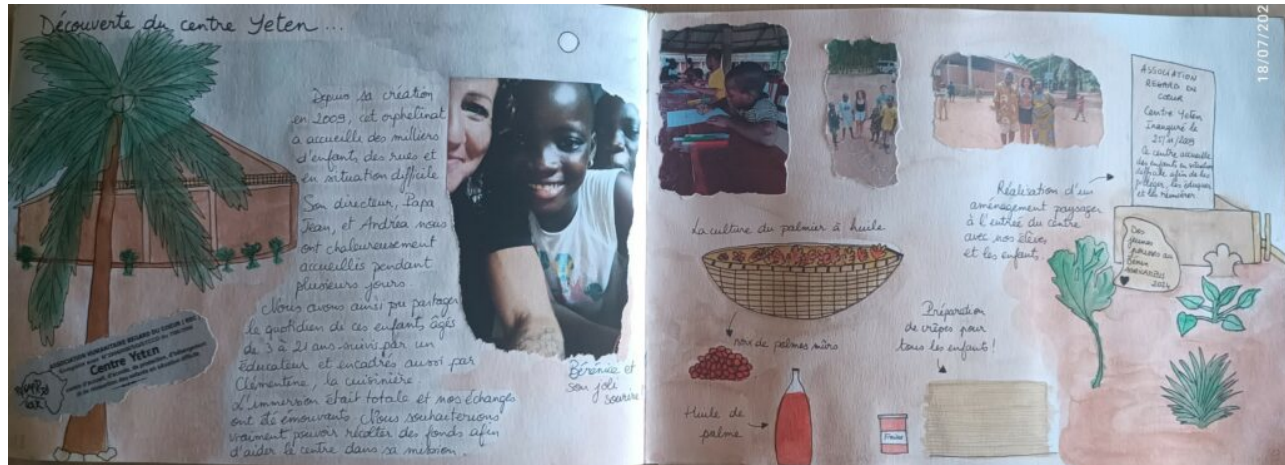 Découverte du centre Yeten...
Depuis sa création
en 2009, cet orphelinat
a accueilli des milliers
d'enfants des rues et
en situation difficile
Son directeur, Papa
Jean, et Andréa nous
ont chaleureusement
accueillis pendant
plusieurs jours.
Nous avons ainsi pu partager
le quotidien de ces enfants âgés
de 3 à 21 ans suivi par un
éducateur et encadrés aussi par
Clémentine, la cuisinière.
L'immersion était totale et nos échanges
ont été émouvants. Nous souhaiterions
vraiment pouvoir récolter des fonds afin
d'aider le centre dans sa mission.
ASSOCIATION HUMANITAIRE REGARD DU COEUR
Centre Yeten
Bérénice et
son joli
sourire!
La culture du palmier à huile
noix de palmes mûrs
Huile de
palme
Préparation
de crêpes pour
tous les enfants!
Réalisation d'un
aménagement paysager
à l'entrée du centre
avec nos élèves
et les enfants.
ASSOCIATION
REGARD DU
COEUR
Centre Yeten
Inauguré le
25/11/2009
Ce centre accueille
des enfants en situation
difficile afin de les
protéger, les éduquer
et les
Des
jeunes
au
Bénin
2024
18/07/202